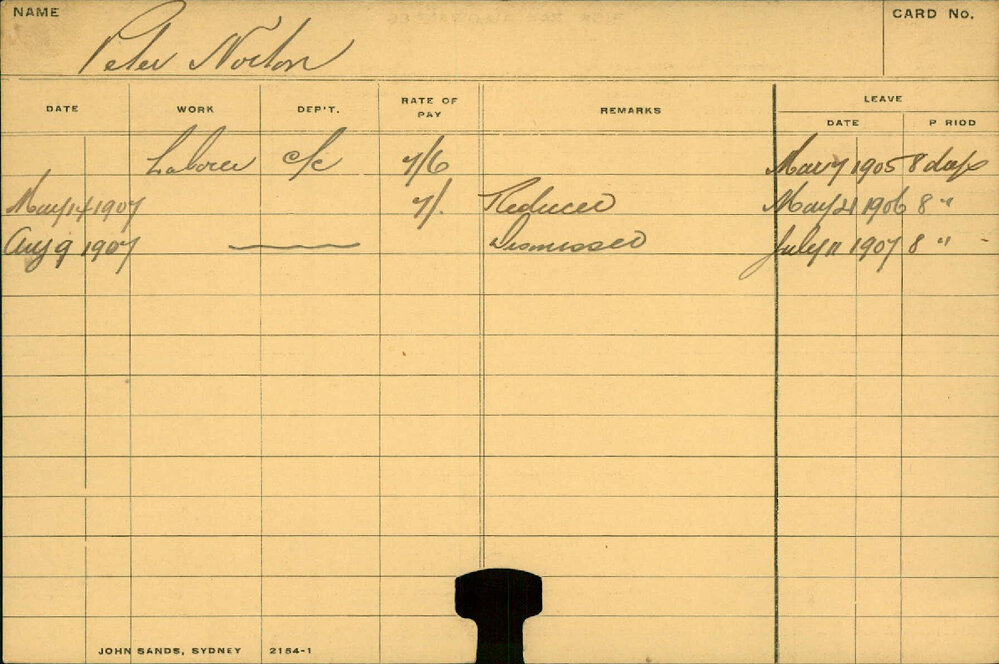 NAME
CARD No.
Peter Norton
DATE WORK DEP'T. RATE OF PAY REMARKS LEAVE
DATE P RIOD
Laborer c/c 7/6 Mar 7 1905 8 days
May 14 1907 7/. Reduced May 21 1906 8 "
Aug 9 1907 Dismissed July 11 1907 8 "
JOHN SANDS, SYDNEY 2154-1